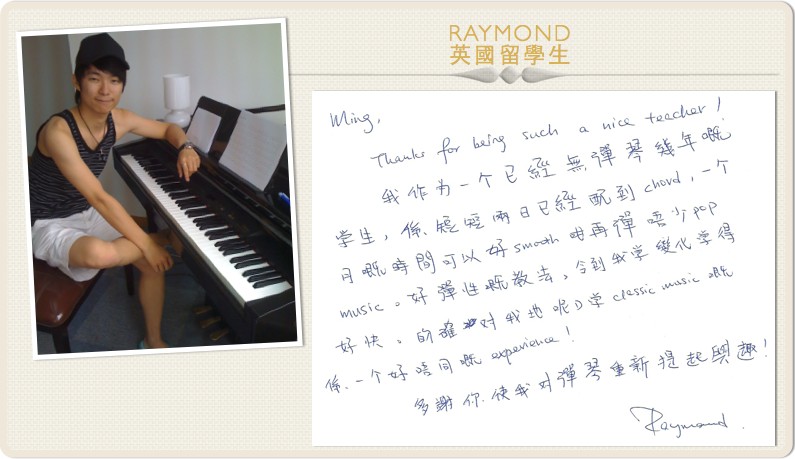 RAYMOND
英國留學生
Ming,
Thanks for being such a nice teacher!
我作为一个已經無彈琴幾年嘅
学生，係短短兩日已經配到chord，一个
月嘅時間可以好smooth咁再彈唔少pop
music。好彈性嘅教法，令到我学變化学得
好快。的確对我地呢D学classic music嘅
係一个好唔同嘅experience!
多謝你使我对彈琴重新提起興趣!
Raymond.